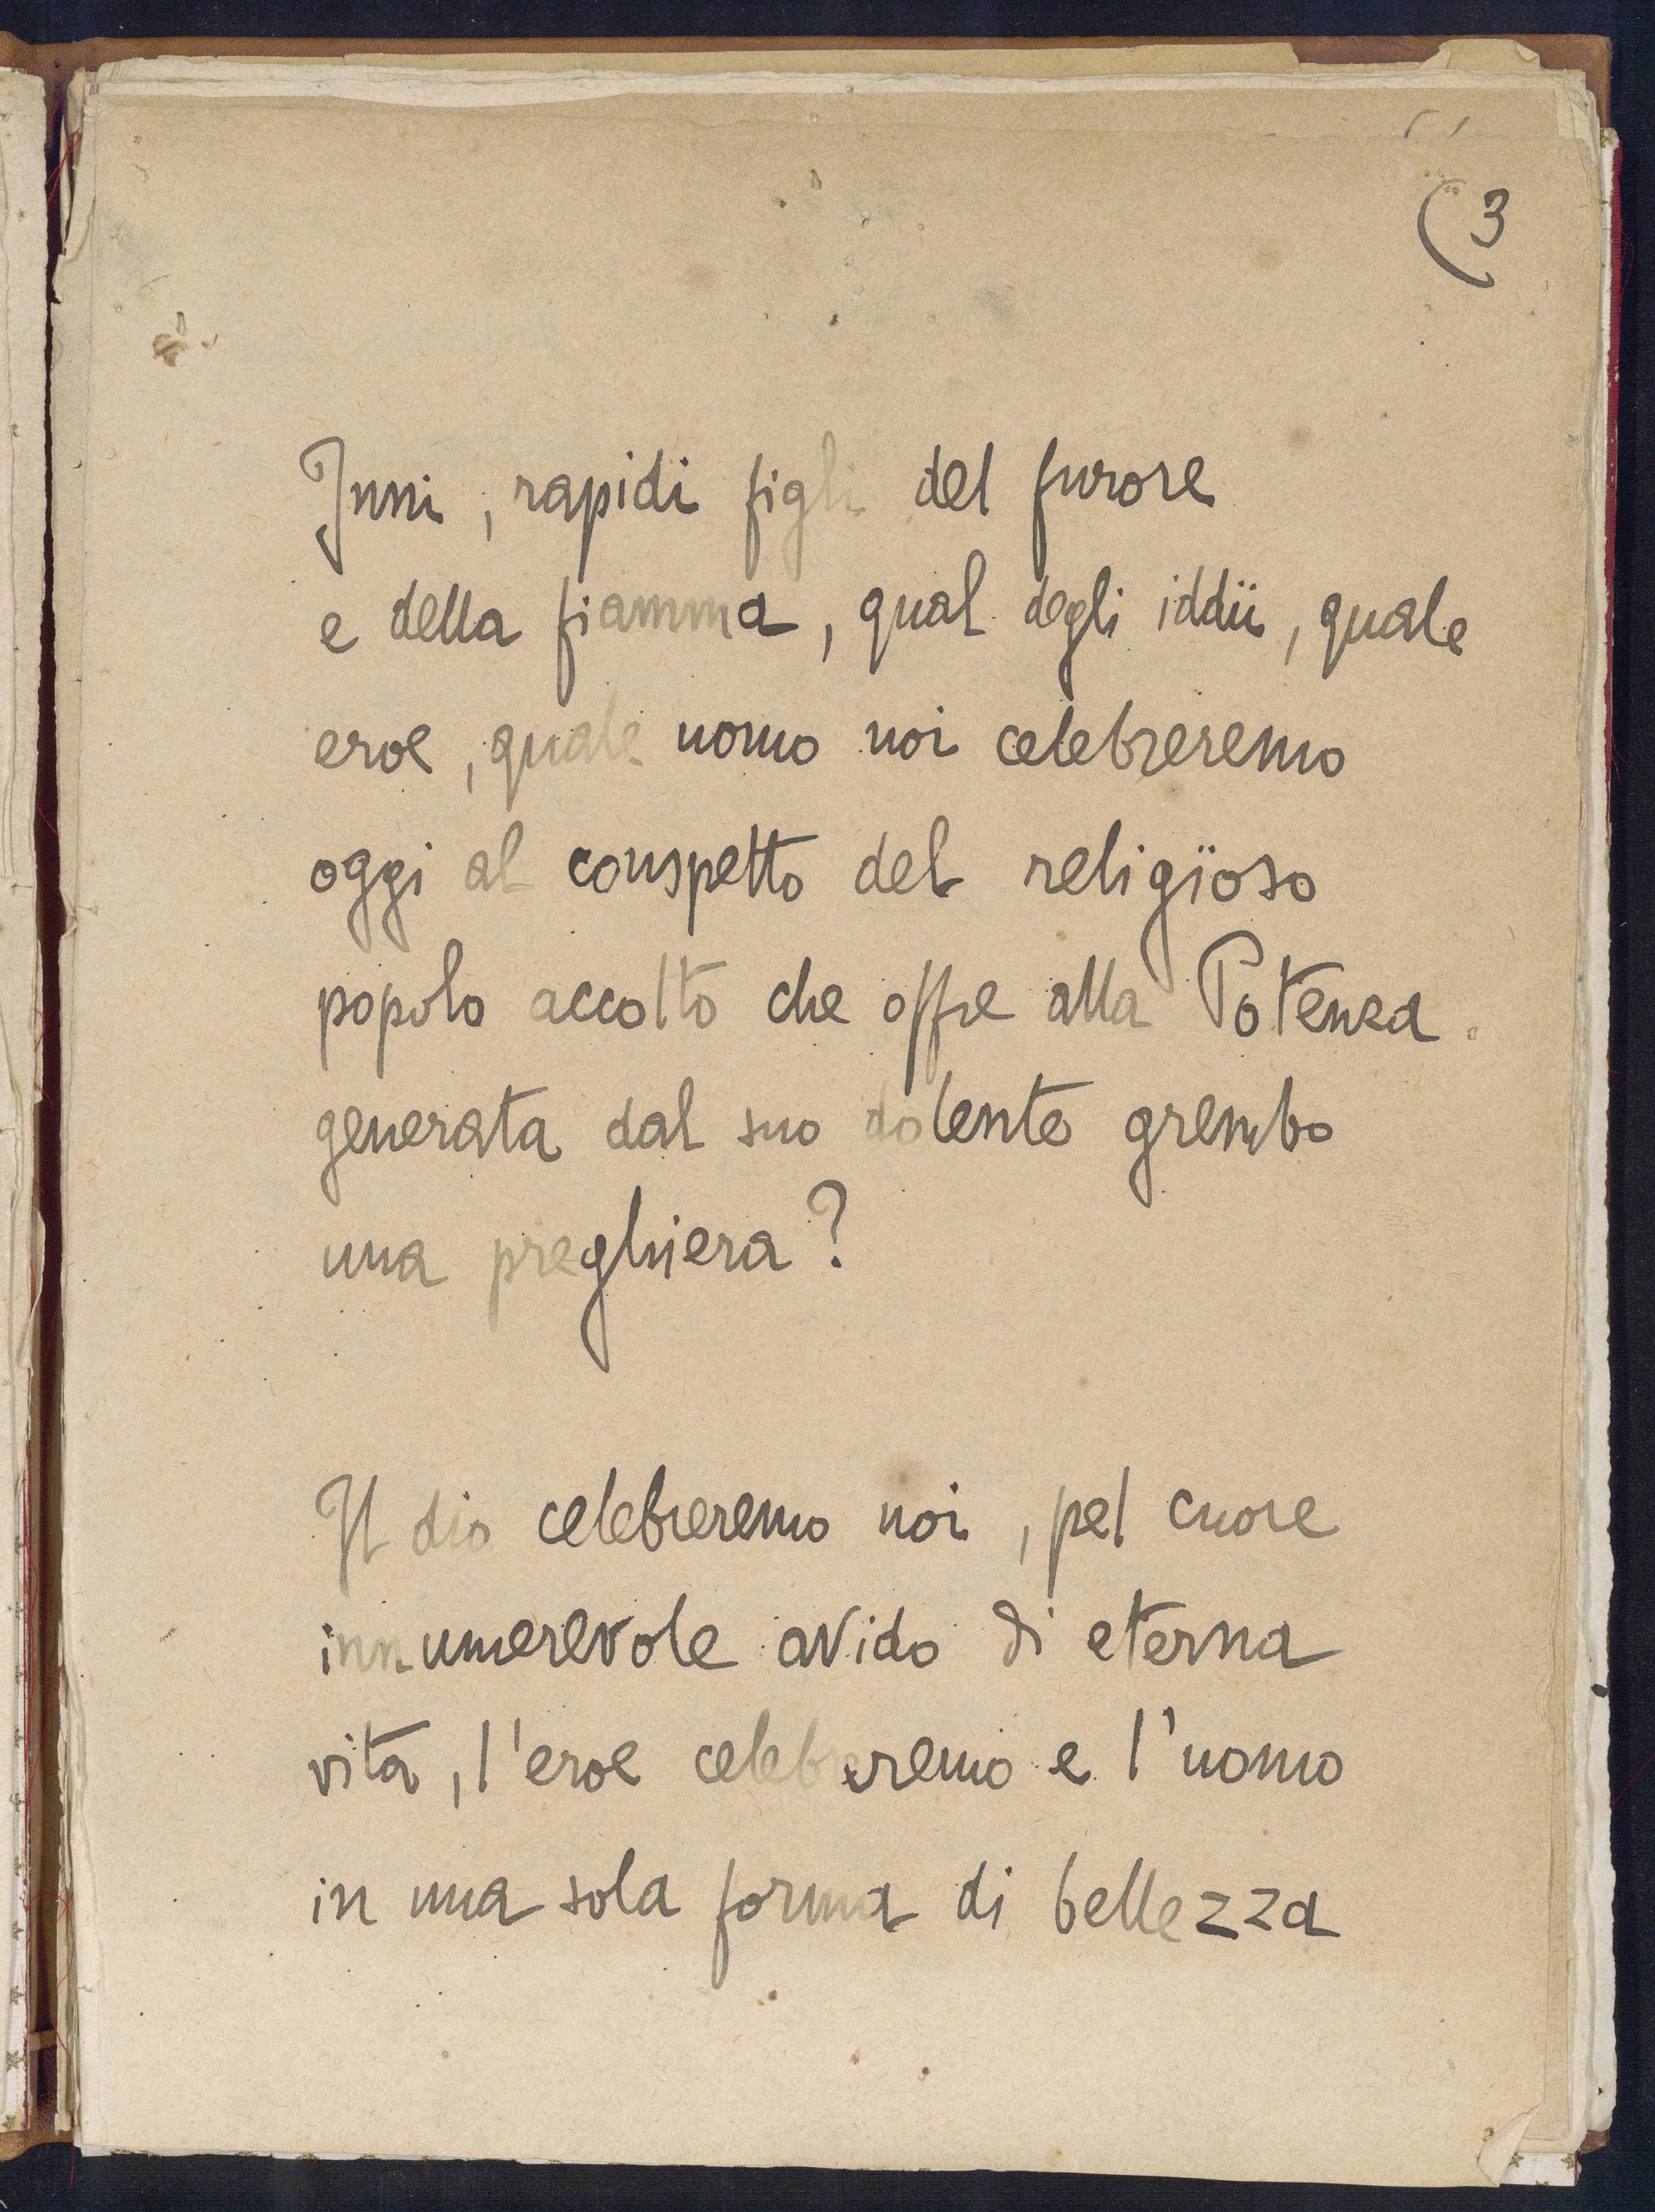 (3
Inni, rapidi figli del furore
e della fiamma, qual degli iddii, quale
eroe, quale uomo noi celebreremo
oggi al conspetto del religïoso
popolo accolto che offre alla Potenza
generata dal suo dolente grembo
una preghiera?
Il dio celebreremo noi, pel cuore
innumerevole avido di eterna
vita, l'eroe celebreremo e l'uomo
in una sola forma di bellezza